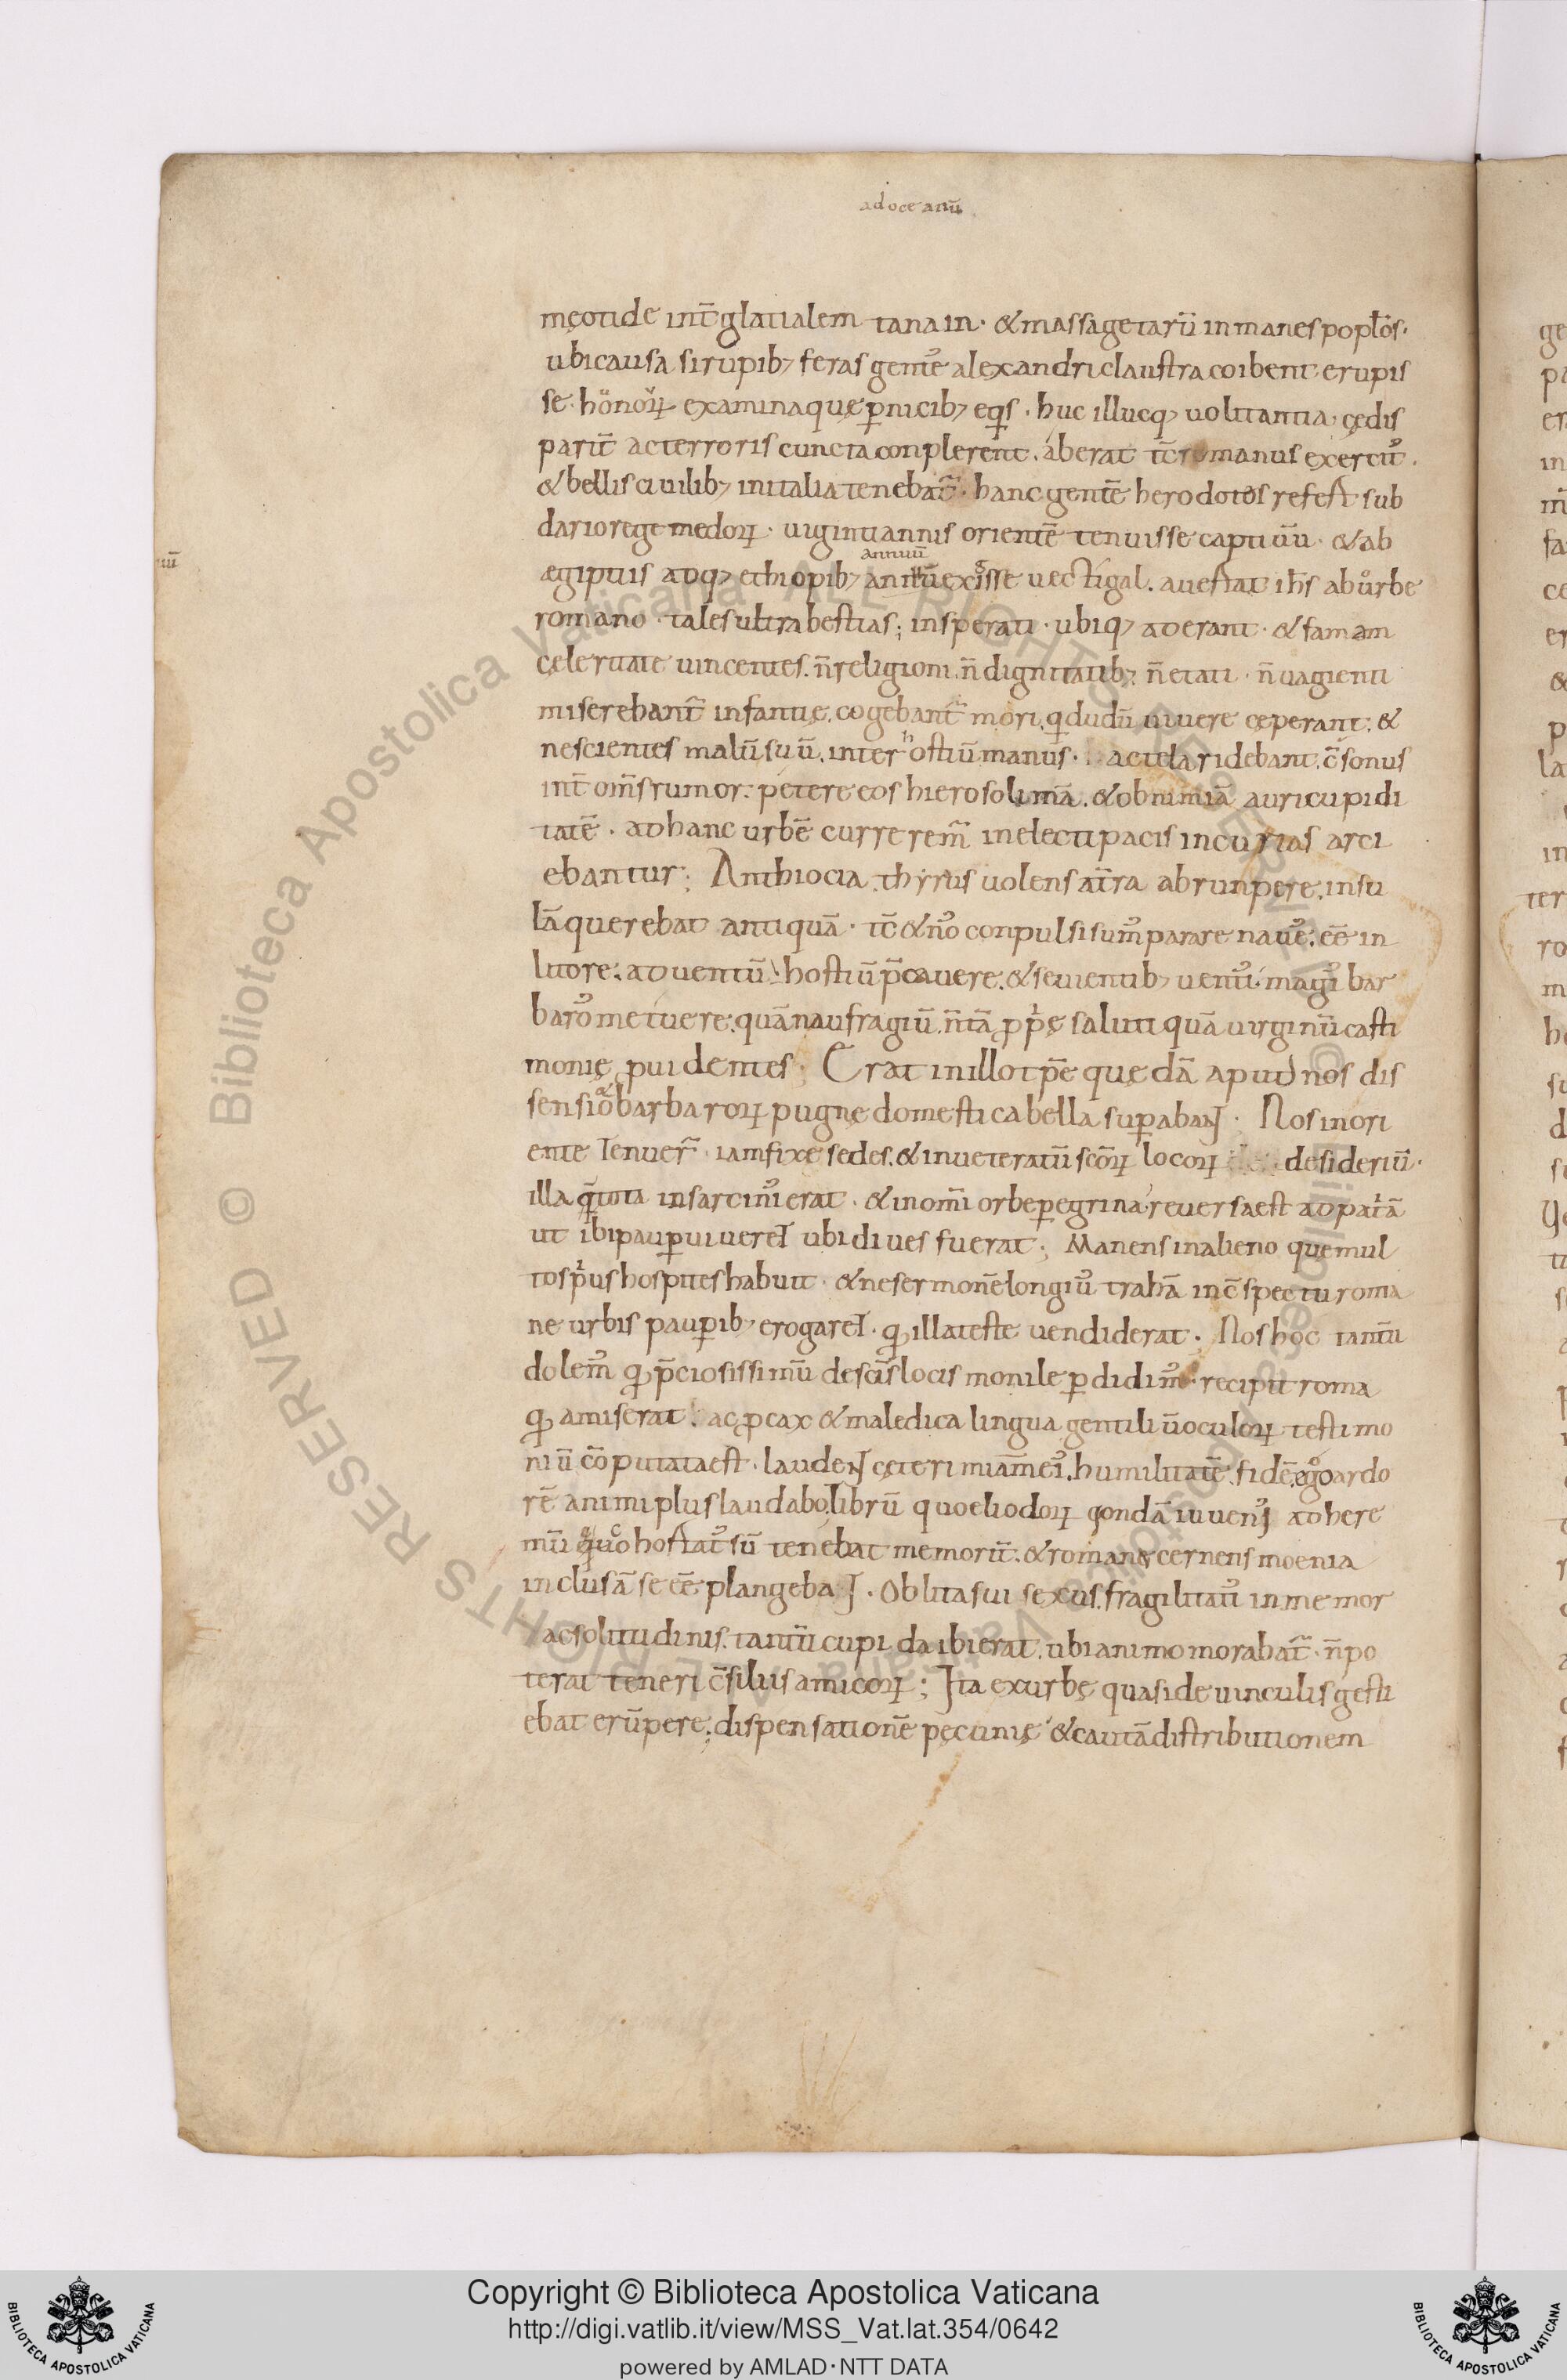 ad oceanū
męotide int̄ glatialem tanain · & massagetarū inmanes popłos ·
ubi causasi rupib; feras gentes alexandri claustra coibent erupis
se · honorꝝ examina quę ꝑnicib; eqis · huc illucq; uolitantia · cędis
parit̄ ac terroris cuncta conplerent . aberat tc̄ romanus exercit᷒ .
& bellis ciuilib; in italia tenebat᷒ · hanc gentē herodotos refert sub
dario rege medorꝝ · uiginti annis orientē tenuisse captiuū · & ab
annuū
ægiptiis adq; ethiopib; annuū exisse uectigal . auertat ih̄s ab urbe
romano · tales ultra bestias ; insperati · ubiq; aderant · & famam
cęleritate uincentes . n̄ religioni . n̄ dignitatib; n̄ etati · n̄ uagienti
miserebant᷒ infantię . cogebant᷒ mori . qui dudū uiuere cęperant : &
nescientes malū suū . inter hostiū manus · ac tela ridebant . c̄sonus
int̄ om̄s rumor : petere eos hierosolimā . & ob nimiā auri cupidi
tatē · ad hanc urbē currere m̄ inelecti pacis incurias arci
ebantur ; Anthiocia . thyrus uolens a tr̄a abrunpere . insu
lā querebat antiquā · tc̄ & nos conpulsi sum᷒ parare naues : ēē in
litore : aduentū hostiū p̄cauere . & seuientib; uentis · magis bar
baros metuere : quā naufragiū . n̄ tā ꝓprię saluti quā uirginū casti
monię ꝓuidentes · Erat in illo tp̄e quędā aput nos dis
sensio & barbarorꝝ pugnę domestica bella suꝑabant · Nos in ori
ente tenuer᷒ · iam fixe sedes . & inueteratū sc̄orꝝ locorꝝ desideriū ·
illa q̄ tota in sarcinis erat · & in om̄i orbe ꝑegrina · reuersa est ad patriā
ut ibi pauꝑ uiueret ubi diues fuerat ; Manens in alieno que mul
tos prius hospites habuit · & ne sermonē longius trahā in c̄spectu roma
ne urbis pauꝑib; erogaret · quod illa teste uendiderat . Nos hoc tantū
dolem᷒ quod p̄ciosissimū de sc̄is locis monile ꝑdidim᷒ · recipit roma
quod amiserat ac ꝓcax & maledica lingua gentiliū oculorꝝ testimo
niū cōputata est · laudent cęteri miam̄ eius . humilitatē . fidē . ego ardo
rē animi plus laudabo . librū quo eliodorꝝ quondā iuuenis ad here
mū hortat᷒ sū tenebat memorit̄ . & romanę cernens moenia
inclusā se ēē plangebat . Oblita sui sexus . fragilitatis inmemor
ac solitudinis . tantū cupida ibi erat . ubi animo morabat᷒ · n̄ po
terat teneri c̄siliis amicorꝝ ; Ita ex urbę quasi de uinculis gesti
ebat erūpere ; dispensationē pęcunię & cautā distributionem
Copyright © Biblioteca Apostolica Vaticana
http://digi.vatlib.it/view/MSS_Vat.lat.354/0642
powered by AMLAD·NTT DATA